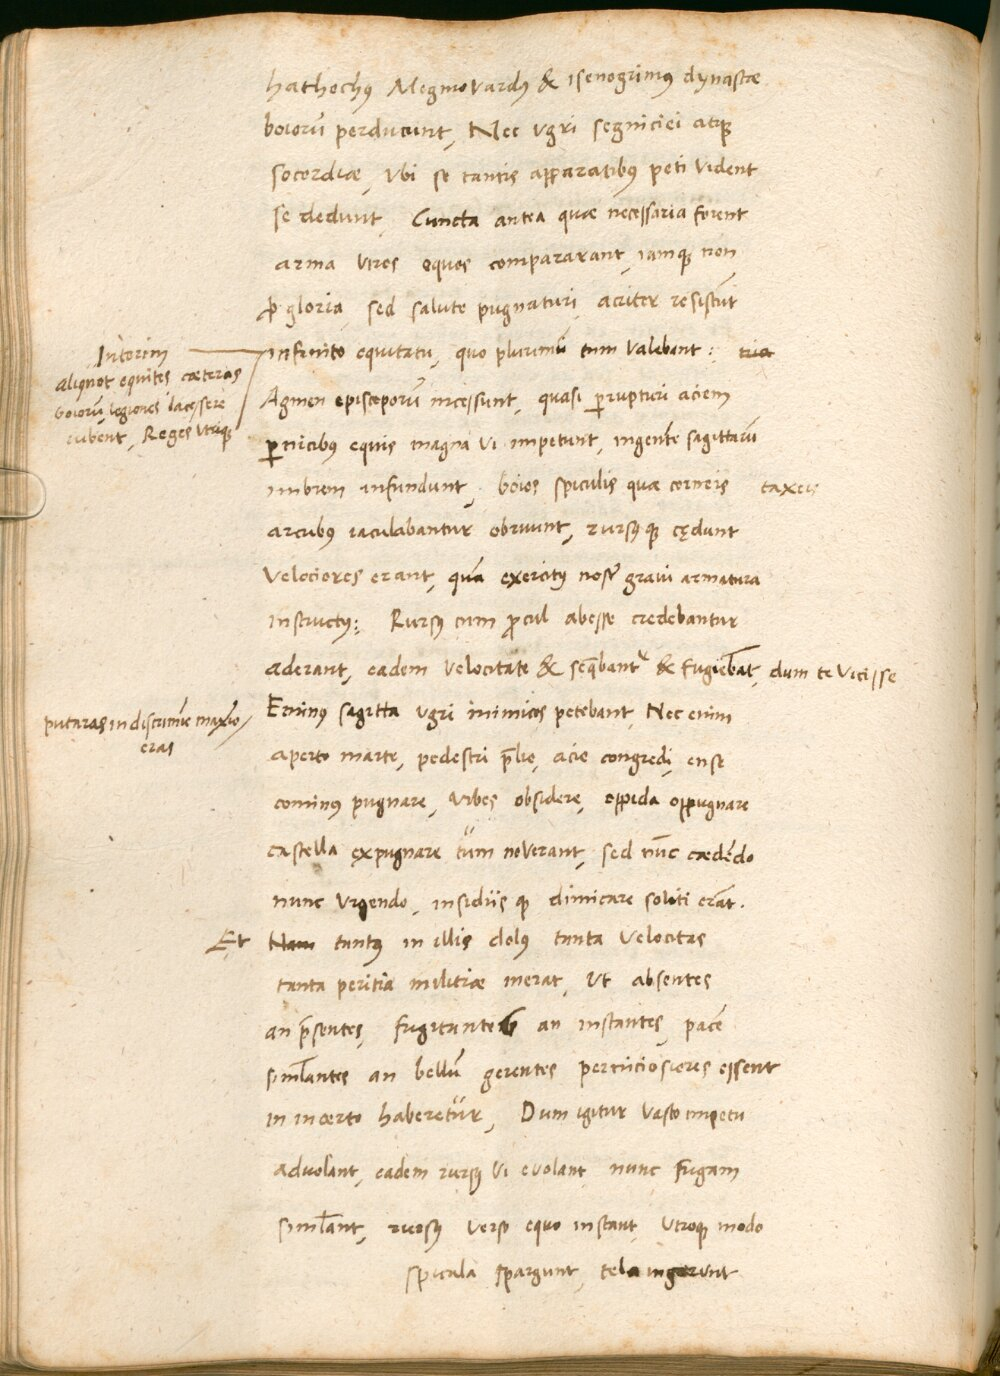 hathochꝰ Megmowardꝰ & isenogrimꝰ dynastæ
boiorū perducunt, Nec vgri segniciei atqꝫ
socordiæ, Vbi se tantis apparatibꝰ peti vident
se dedunt, Cuncta antea quæ necessaria forent
arma viros equos compararant, iamqꝫ non
ꝓ gloria, sed salute pugnaturi, acriter resistūt
Interim
aliquot equites, cæteras
boiorū legiones lacessere
iubent, Reges utrqꝫ
infinito equitatu, quo plurimū tum valebant:
Agmen episcoporū incessunt, quasi ꝑrupturi aciem
ꝑnicibꝰ equis magna vi impetunt, ingentē sagittarū
imbrem infundunt, boios spiculis quæ corneis taxeis
arcubꝰ iaculabantur obruunt, rursꝰqꝫ cędunt
Velociores erant, quā exercitꝰ nosr̄ graui armatura
instructꝰ: Rursꝰ cum ꝓcul abesse credebantur
aderant, eadem velocitate & seq̄bantᷣ & fugiebāt, dum te vicisse
putaras in discrimīe maxīo
eras
Eminꝰ sagitta vgri inimicos petebant, Nec enim
aperto marte, pedestri p̄lio, acie congredi, ense
cominꝰ pugnare, vrbes obsidere, oppida oppugnare
castella expugnare tum noverant, sed nūc cædēdo
nunc vrgendo, insidiisqꝫ dimicare soliti erāt.
Et Nam tantꝰ in illis dolꝰ tanta velocitas
tanta peritia militiæ inerat, Ut absentes
an p̄sentes, fugitantes an instantes, pacē
siml̄antes an bellū gerentes perniciosiores essent
in incerto haberetur, Dum igitur vasto impetu
advolant, eadem rursꝰ vi evolant, nunc fugam
siml̄ant, rursꝰ verso equo instant, Utroqꝫ modo
spicula spargunt, tela ingerunt